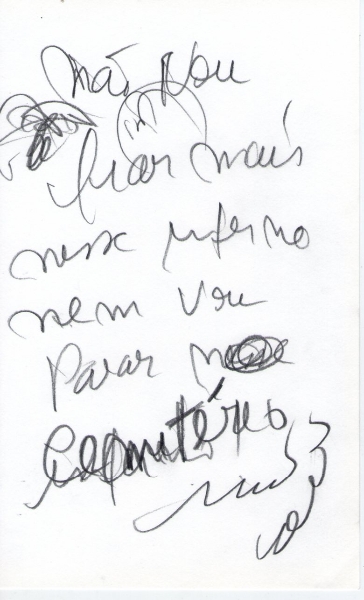 não vou
ficar mais
nesse inferno
nem vou
parar
Cemitério